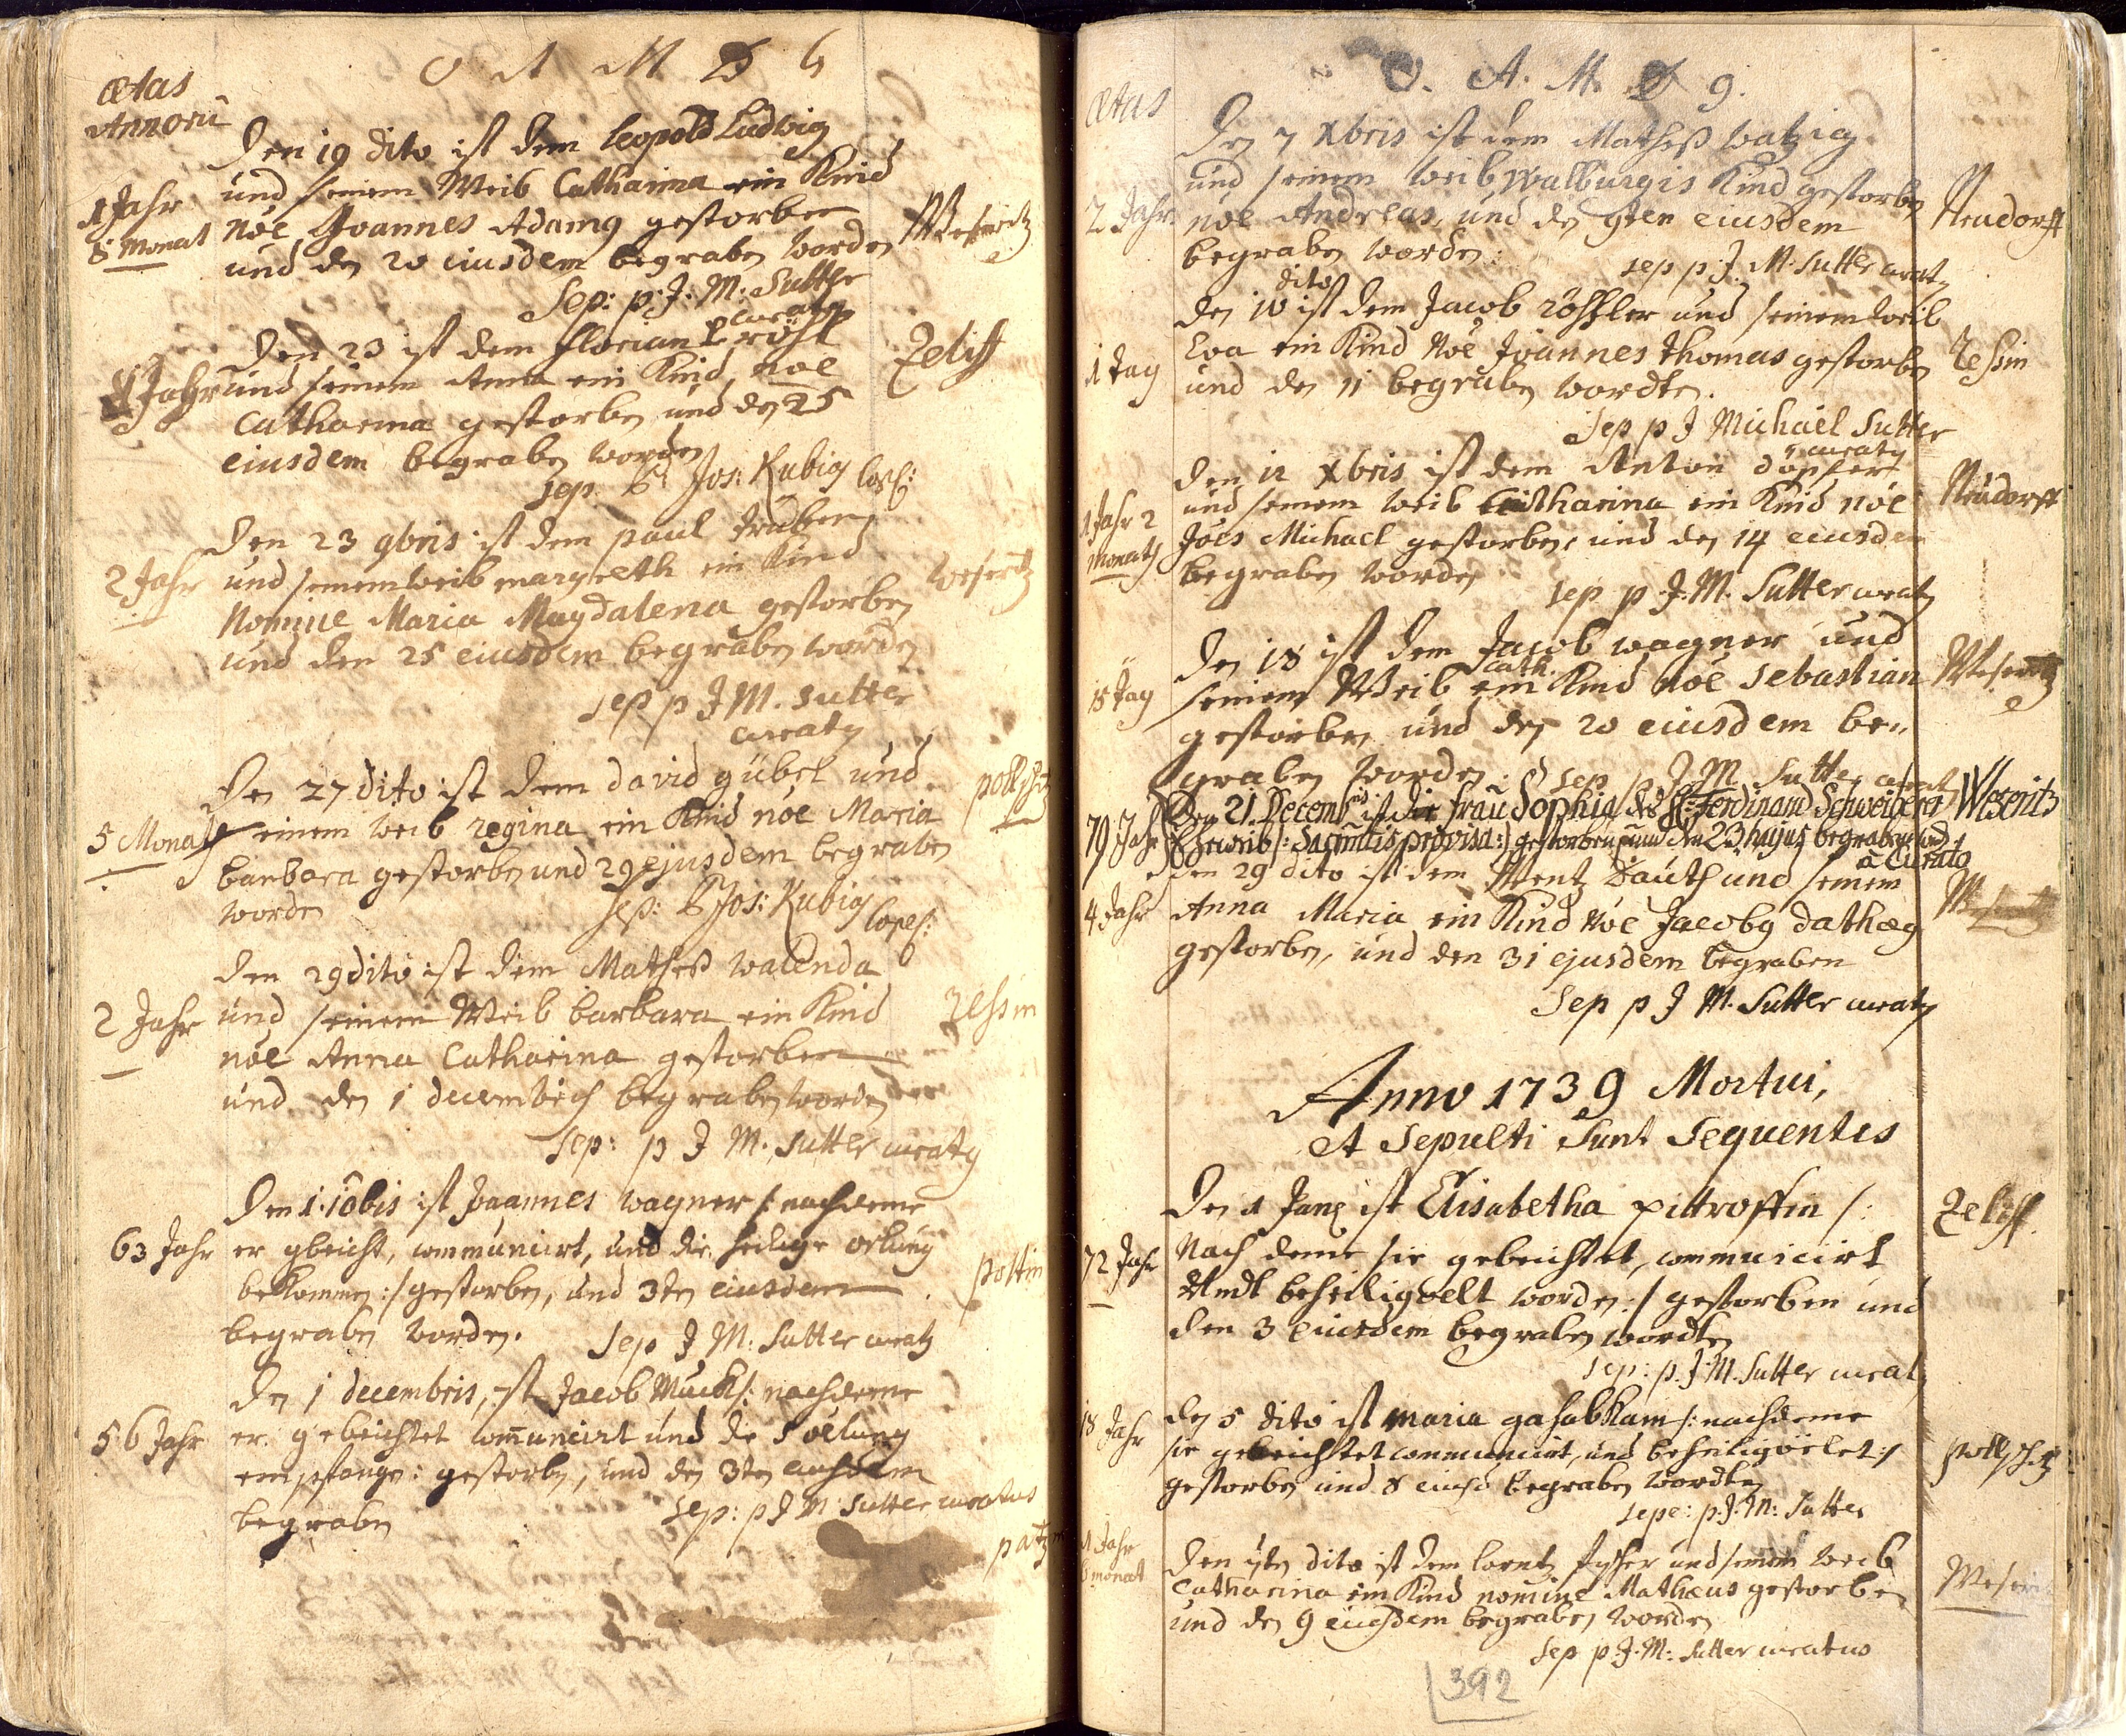 O A M D G
Ætas
Annorũ
Den 19 dito ist dem Leopold Ludwig
1 Jahr und seinem Weib Catharina ein Kind
8 Monat nõe Joannes Adamus gestorben Weseritz
und den 20 eiusdem begraben worden
Sep: p: J: M: Sutter
curatus
Den 23 ist dem Florian Zeliff
Jahr und seinem Anna ein Kind noe
Catharina gestorben und den 25
eiusdem begraben worden
sep. P. Jos: Kubig
Den 23 9bris ist dem paul
2 Jahr und seinem weib margreth ein Kind weseritz
Nomine Maria Magdalena gestorben
und den 25 eiusdem begraben worden
sep p J M. Sutter
curatus
Den 27 dito ist dem david gübel und pollschitz
5 Monath seinem weib regina ein Kind noe Maria
barbara gestorben und 29 ejusdem begraben
worden Sep: P Jos: Kubig
Den 29 dito ist dem Matheß walenda
2 Jahr und seinem Weib barbara ein Kind zessin
nõe Anna Catharina gestorben
und den 1 decembris begraben worden
sep: p J M. Sutter curatus
Den 1 10bris ist Joannes wagner /: nachdeme
63 Jahr er gbeicht, communicirt, und die heilige oelung
bekommen :/ gestorben, und 3ten eiusdem poltin
begraben worden. Sep J M: Sutter curatus
Den 1 decembris, ist Jacob Muck /: nachdeme
56 Jahr er gebeichtet com̃unicirt und die oelung
empfangen: gestorben, und den 3ten eiusdem
begraben sep: p J M Sutter curatus
O. A. M. D G.
Ætas
Den 7 Xbris ist dem Matheß watzig
und seinem weib Walburgis Kind gestorben
2 Jahr noe Andreas, und den 9ten eiusdem Neudorff
begraben worden: sep p: J: M: Sutter curatus
dito
den 10 ist dem Jacob röhsler und seinem weib
1 Tag Eva ein Kind Noe Joannes Thomas gestorben zessin
und den 11 begraben worden.
Sep p J Michael Sutter
curatus
Den 12 Xbris ist dem Anton döpfer
1 Jahr 2 und seinem weib Catharina ein Kind nõe Neudorff
Monath Joes Michael gestorben, und den 14 eiusdem
begraben worden sep p J. M. Sutter curatus
Den 18 ist dem Jacob wagner und
cath.
18 Tag seinem Weib ein Kind nõe Sebastian Weseritz
gestorben und den 20 eiusdem be„
graben worden: sep p J M Sutter curatus
79 Jahr Den 21 Decemb͠ris ist die frau Sophia des H: Ferdinand Weseritz
Eheweib /: Sacram̃tis provisa :/ gestorben, und den 23 hujus begraben word
a Curato
den 29 dito ist dem Wentz Däuth und seinem
4 Jahr Anna Maria ein Kind Noe Jacobus dathæus
gestorben, und den 31 ejusdem begraben
Sep p J M. Sutter curatus
Anno 1739 Mortui,
et Sepulti Sunt Sequentes
Den 1 Janu ist Elisabetha pittroffin /: Zeliff.
72 Jahr Nach deme sie gebeichtet, communicirt
worden :/ gestorben und
den 3 eiusdem begraben worden
sep: p: J: M. Sutter curat
18 Jahr den 5 dito ist Maria /: nachdeme
sie gebeichtet communicirt, und pollschitz
gestorben und 8 eiusd begraben worden
sepe: p: J: M: Sutter
1 Jahr
6 monat Den 7ten dito ist dem lorentz fischer und seinem weib
Catharina ein Kind nomine Mathæus gestorben Weseri
und den 9 eiusdem begraben worden
Sep p: J: M: Sutter curatus
392